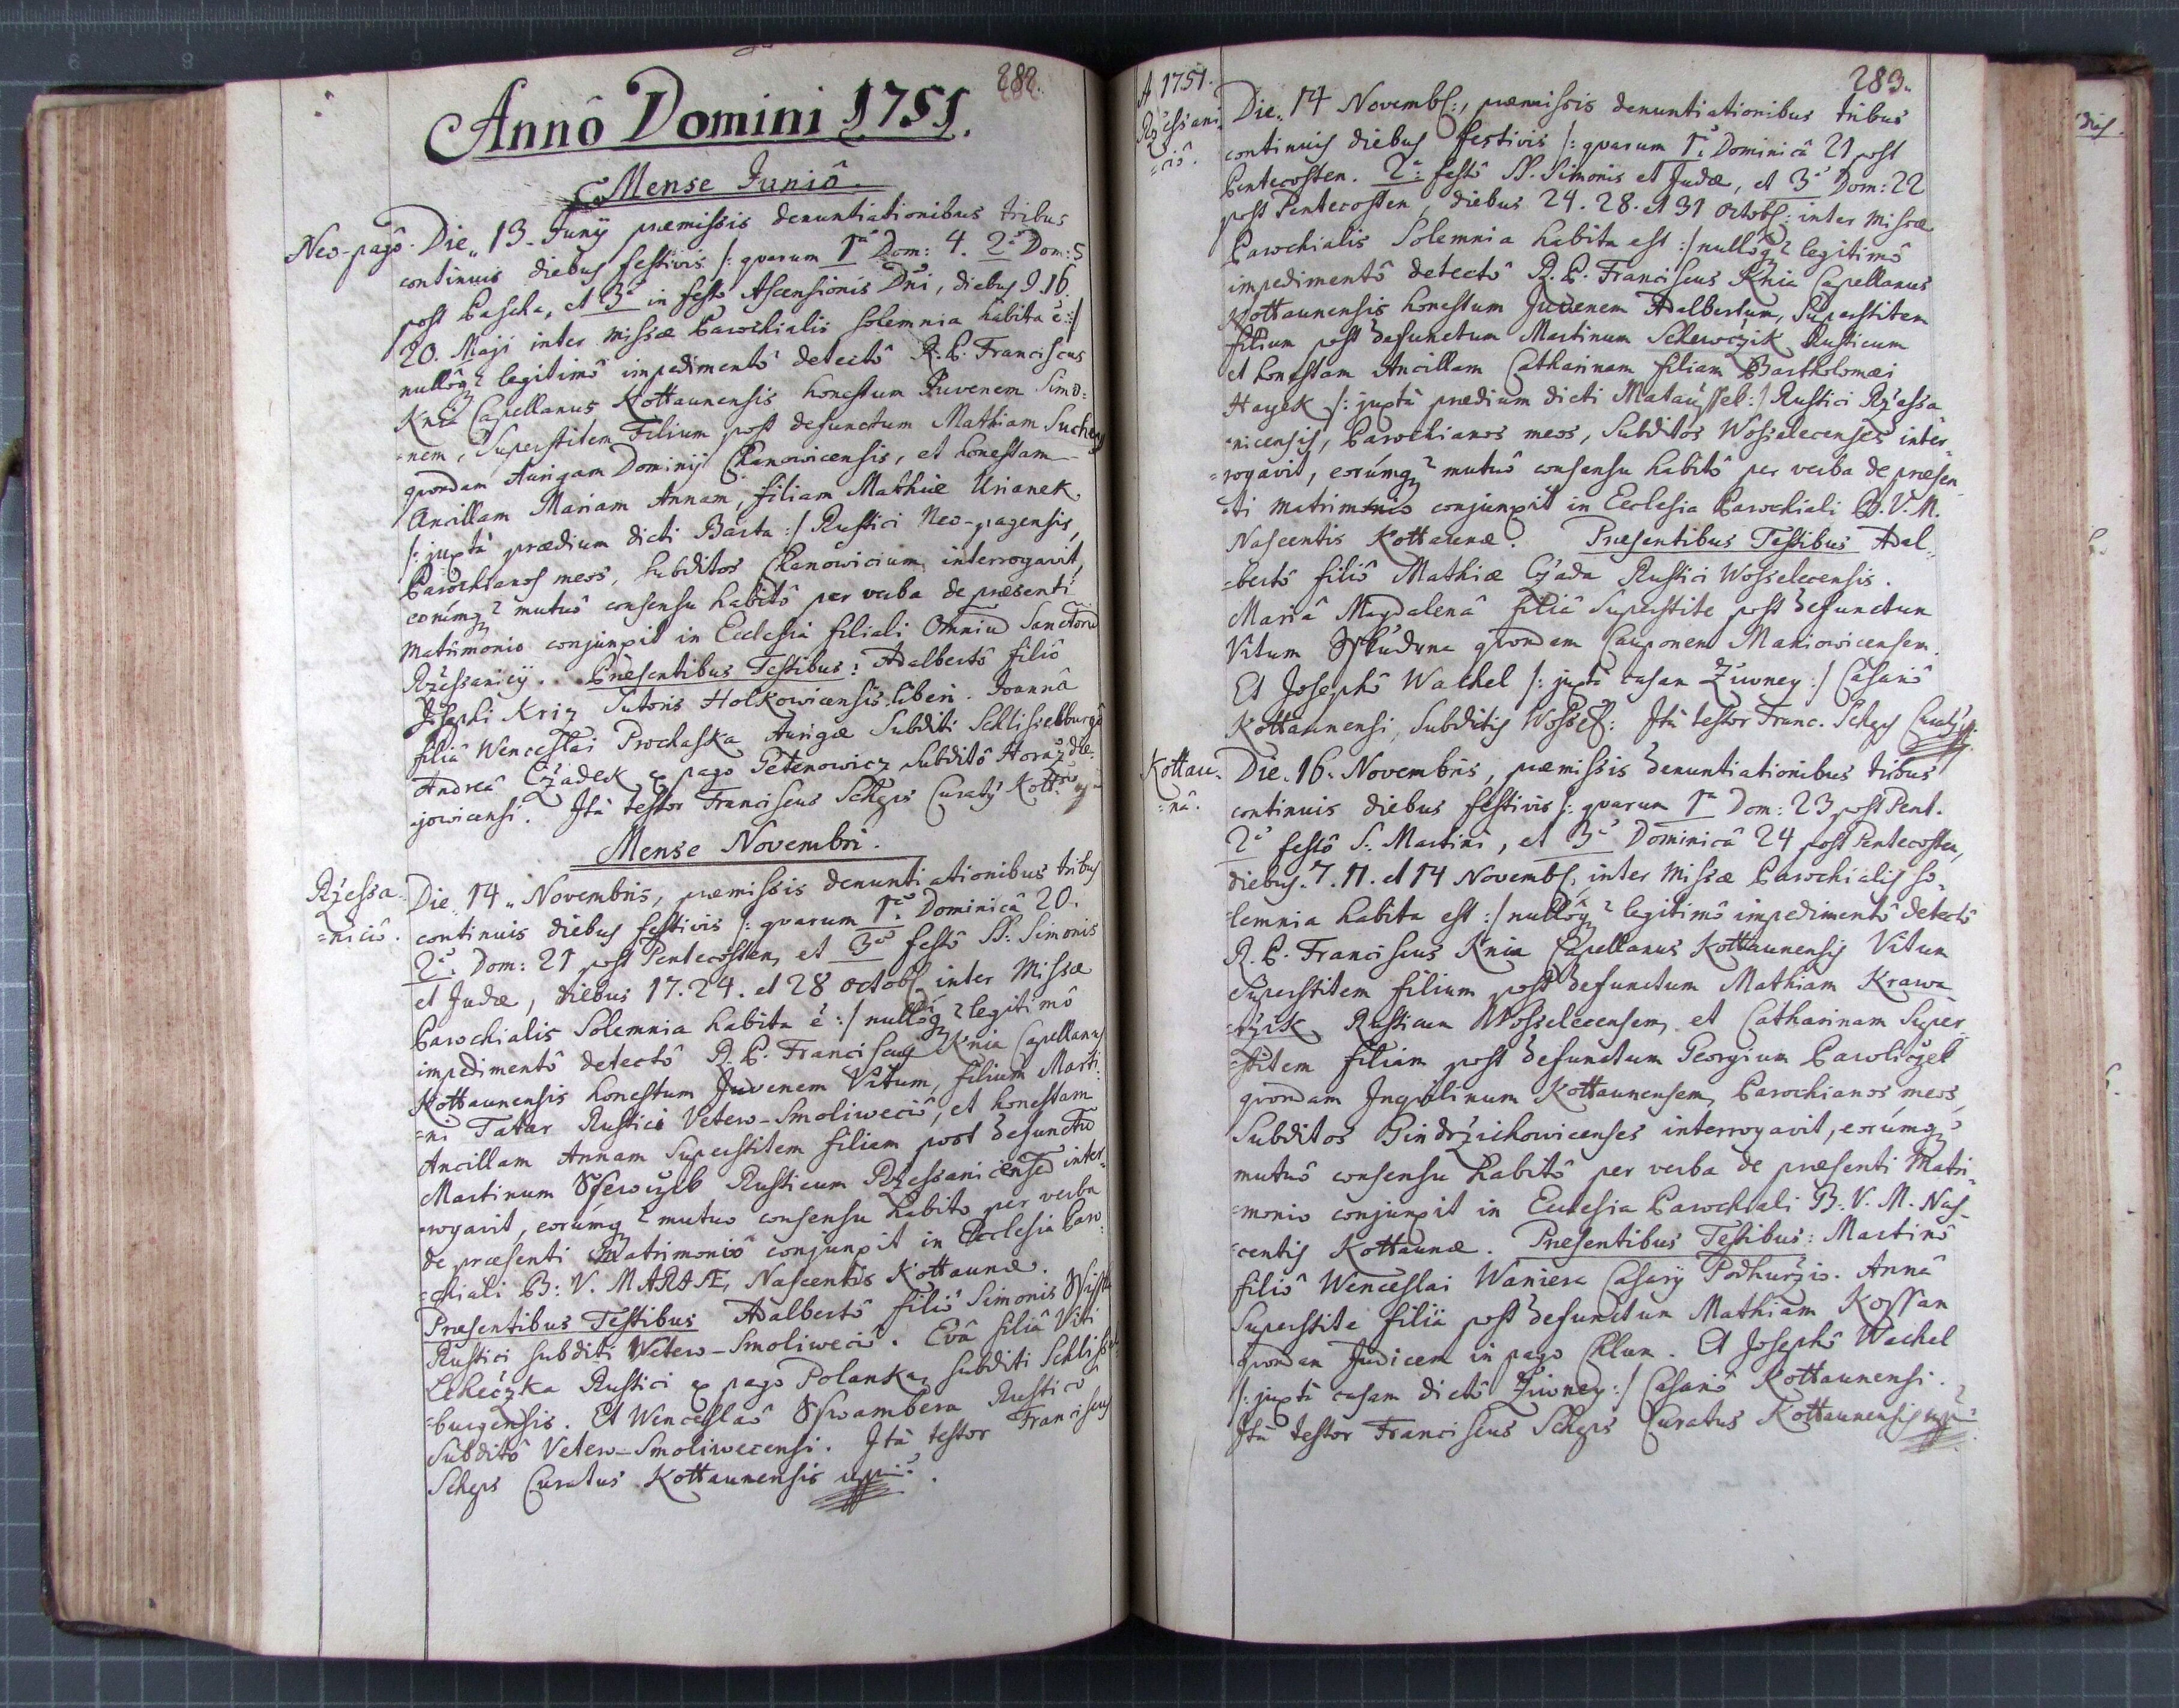 282.
Annô Domini 1751.
Mense Juniô.
Neo-pagô. Die „ 13 „ Junÿ præmissis denuntiationibus tribus
continuis diebus festivis /: quarum 1ª Dom: 4. 2ª Dom: 5
post Pascha, et 3ª in festo Ascensionis Dñi, diebus 9. 16.
20. Maji inter missæ Parochialis solemnia habita ē :/
nullôq legitimô impedimentô detectô R. P. Franciscus
Knia Capellanus Kottaunensis honestum Juvenem Simo=
=nem, Superstitem Filium post defunctum Mathiam Suchey
quondam Aurigam Dominÿ Chanowicensis, et honestam
Ancillam Mariam Annam, filiam Mathiæ Urianek
/: juxtà prædium dicti Barta :/ Rustici Neo-pagensis,
Parochianos meos, subditos Chanowicium interrogavit,
eorúmq mutuô consensu habitô per verba de præsenti
matrimonio conjunxit in Ecclesia filiali Omniū Sanctorū
Ržessanicÿ. Præsentibus Testibus: Adalbertô filiô
Josephi Kriz Sutoris Holkowicensis liberi. Joannâ
filiâ Wenceslai Prochaska Aurigæ Subditi Schlisselburgẽ
Andreâ Cžadek ex pago Petenowicz subditô Horaždie=
=jowicensi. Ità testor Franciscus Scheps Curatꝰ Kott:
Mense Novembri.
Ržessa=
=niciô.
Die „ 14 „ Novembris, præmissis denuntiationibus tribus
continuis diebus festivis /: quarum 1ª Dominicâ 20.
2ª Dom: 21 post Pentecosten, et 3ª festô SS: Simonis
et Judæ, diebus 17. 24. et 28 octob: inter Missæ
Parochialis Solemnia habita ē :/ nullôq legitimô
impedimentô detectô R. P. Franciscus Knia Capellanus
Kottaunensis honestum Juvenem Vitum, filium Marti=
=ni Tatar Rustici Vetero-Smoliweciô, et honestam
Ancillam Annam Superstitem filiam post defunctū
Martinum Ssewczik Rusticum Ržessanicensē inter=
=rogavit, eorúmq mutuo consensu habito per verba
de præsenti Matrimoniô conjunxit in Ecclesia Paro=
=chiali B: V. MARIÆ Nascentis Kottaunæ.
Præsentibus Testibus Adalbertô filiô Simonis
Rustici subditi Vetero-Smoliweciô. Evâ filiâ Viti
Lehečzka Rustici ex pago Polanka, subditi Schlissel=
=burgensis. Et Wenceslaô Sswambera Rusticô
Subditô Vetero-Smoliwecensi. Ità testor Franciscus
Scheps Curatus Kottaunensis mpia.
283.
A 1751.
Ržessani=
=ciô.
Die „ 14 Novemb:, præmissis denuntiationibus tribus
continuis diebus festivis /: quarum 1ª Dominicâ 21 post
Pentecosten. 2ª festô SS. Simonis et Judæ, et 3ª Dom: 22
post Pentecosten, diebus 24. 28. et 31 octob: inter missæ
Parochialis Solemnia habita est :/ nullôq legitimô
impedimentô detectô R. P. Franciscus Knia Capellanus
Kottaunensis honestum Juvenem Adalbertum, Superstitem
filium post defunctum Martinum Schewczik Rusticum
et honestam Ancillam Catharinam filiam Bartholomæi
Hayek /: juxtà prædium dicti Mataussek :/ Rustici Ržessa=
=nicensis, Parochianos meos, Subditos Wosselecenses inter=
=rogavit, eorúmq mutuô consensu habitô per verba de præsen=
=ti matrimonio conjunxit in Ecclesia Parochiali B. V. M.
Nascentis Kottaunæ. Præsentibus Testibus Adal=
=bertô filiô Mathiæ Czada Rustici Wosselecensis.
Mariâ Magdalenâ filiâ Superstite post defunctum
Vitum quondam Cauponem Maniowicensem.
Et Josephô Wachel /: juxtà casam Žiwney :/ Casariô
Kottaunensi, Subditis Wossel: Ità testor Franc. Scheps Curatꝰ
Kottau=
=nâ.
Die „ 16 „ Novembris, præmissis denuntiationibus tribus
continuis diebus festivis /: quarum 1ª Dom: 23 post Pent.
2ª festô S: Martini, et 3ª Dominicâ 24 post Pentecosten,
diebus 7. 11. et 14 Novemb: inter missæ Parochialis so=
=lemnia habita est :/ nullôq legitimô impedimentô detectô
R. P. Franciscus Knia Capellanus Kottaunensis Vitum
Superstitem filium post defunctum Mathiam Krawa=
=rzik Rusticum Wosselecensem, et Catharinam Super=
=stitem filiam post defunctum Georgium Paroliczek
quondam Inquilinum Kottaunensem, Parochianos meos,
Subditos Gindržichowicenses interrogavit, eorúmq
mutuô consensu habitô per verba de præsenti Matri=
=monio conjunxit in Ecclesia Parochiali B. V. M. Nas=
=centis Kottaunæ. Præsentibus Testibus: Martinô
filiô Wenceslai Waniera Casarÿ Podhuržio. Annâ
Superstite filiâ post defunctum Mathiam Kossan
quondam Judicem in pago Chlum. Et Josephô Wachel
/: juxtà casam dictô Žiwney :/ Casariô Kottaunensi.
Ità testor Franciscus Scheps Curatus Kottaunensis mpia